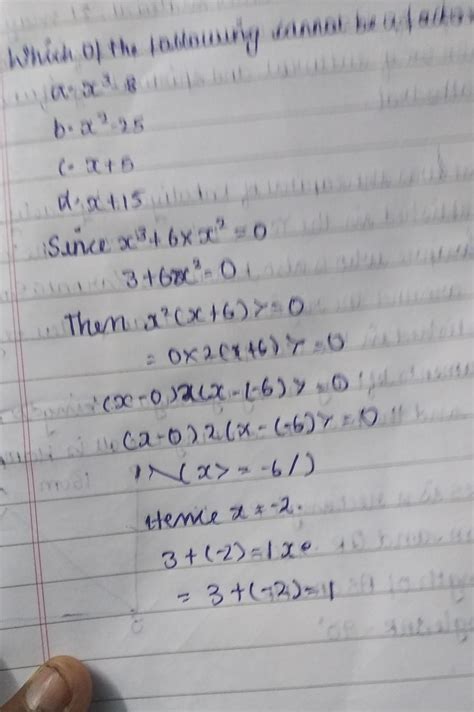 Which of the following cannot be a factor
a. x³-8
b. x²-25
c. x+5
d. x+15
Since x³+6xx²=0
3+68x²=0
Then x²(x+6)>=0
=0x2(x+6)>=0
(x-0)2(x-(-6)>=0
(x-0)2(x-(-6)>=0
(x>=-6/)
Hence x=-2.
3+(-2)=1x
=3+(-2)=1